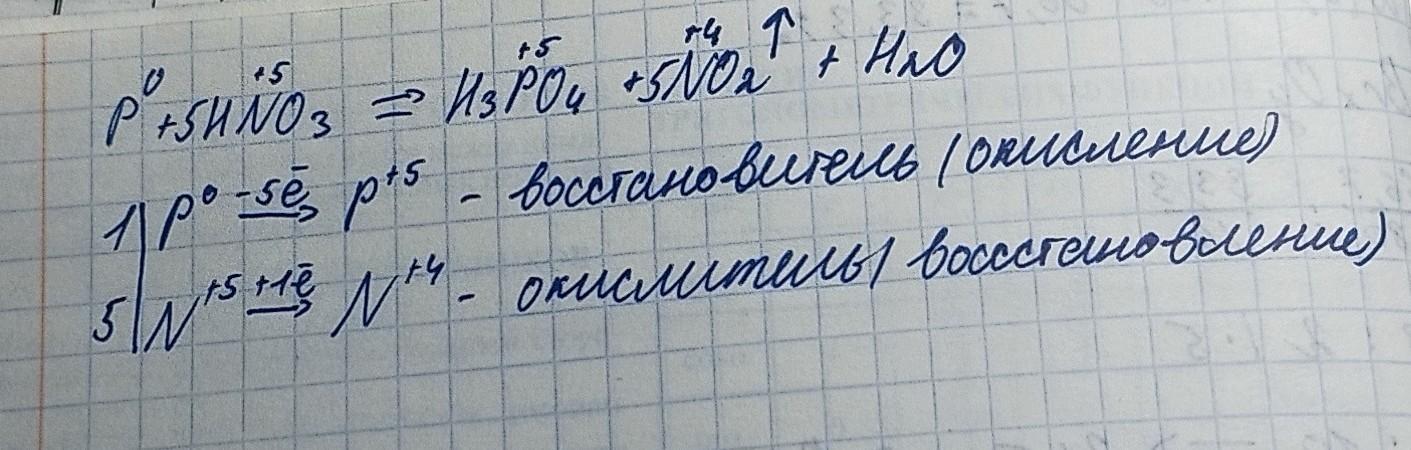 P⁰ + 5HN⁺⁵O₃ ⇒ H₃P⁺⁵O₄ + 5N⁺⁴O₂↑ + H₂O
1| P⁰ -5ē → P⁺⁵ - восстановитель (окисление)
5| N⁺⁵ +1ē → N⁺⁴ - окислитель( воссстановление)